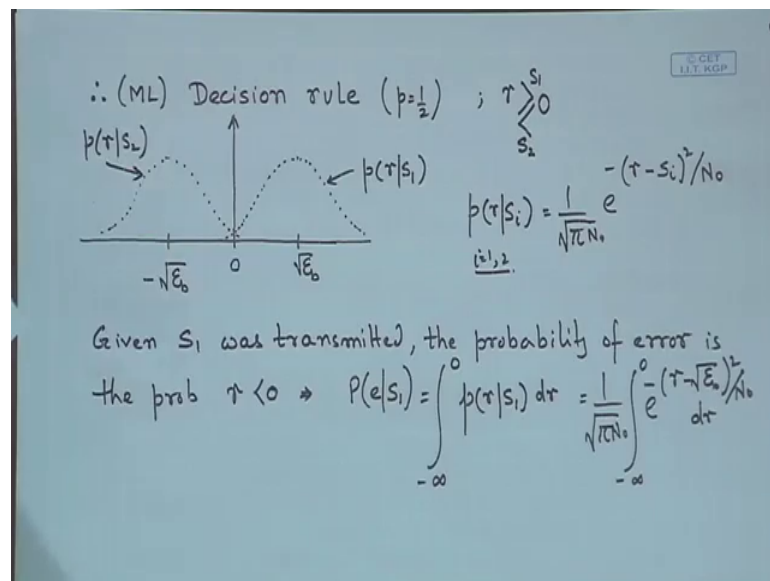 © CET
I.I.T. KGP
∴ (ML) Decision rule (p=½) ; r ≷ 0
S₁
S₂
p(r|S₂)
p(r|S₁)
p(r|Sᵢ) = 1/√(πN₀) e^(-(r-Sᵢ)²/N₀)
i=1,2
-√ℰb 0 √ℰb
Given S₁ was transmitted, the probability of error is
the prob r<0 ⇒ P(e|S₁) = ∫_{-∞}^{0} p(r|S₁) dr = 1/√(πN₀) ∫_{-∞}^{0} e^(-(r-√ℰb)²/N₀) dr